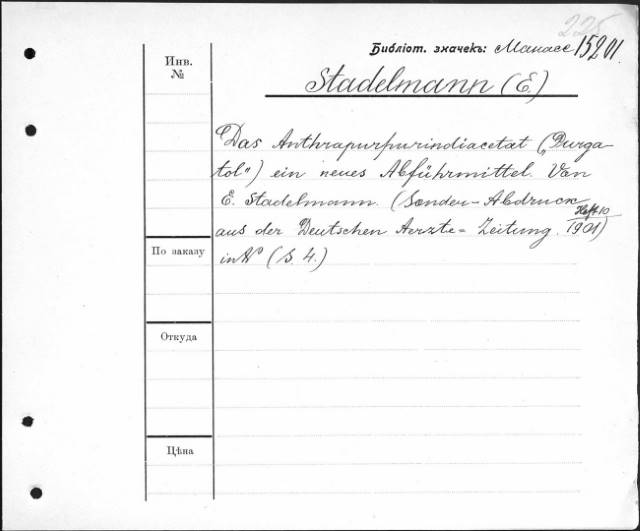 225
Библіот. значекъ: Манасс 15201
Инв.
№
Stadelmann (E.)
Das Anthrapurpurindiacetat („Purga-
tol“) ein neues Abführmittel. Von
E. Stadelmann. (Sonder-Abdruck
aus der Deutschen Aerzte-Zeitung. Heft 10
1901)
in 8° (S. 4.)
По заказу
Откуда
Цѣна